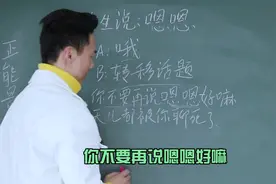 正能量
生说:嗯嗯.
A:哦
B:转移话题
你不要再说嗯嗯好嘛
天儿都被你聊死了
你不要再说嗯嗯好嘛